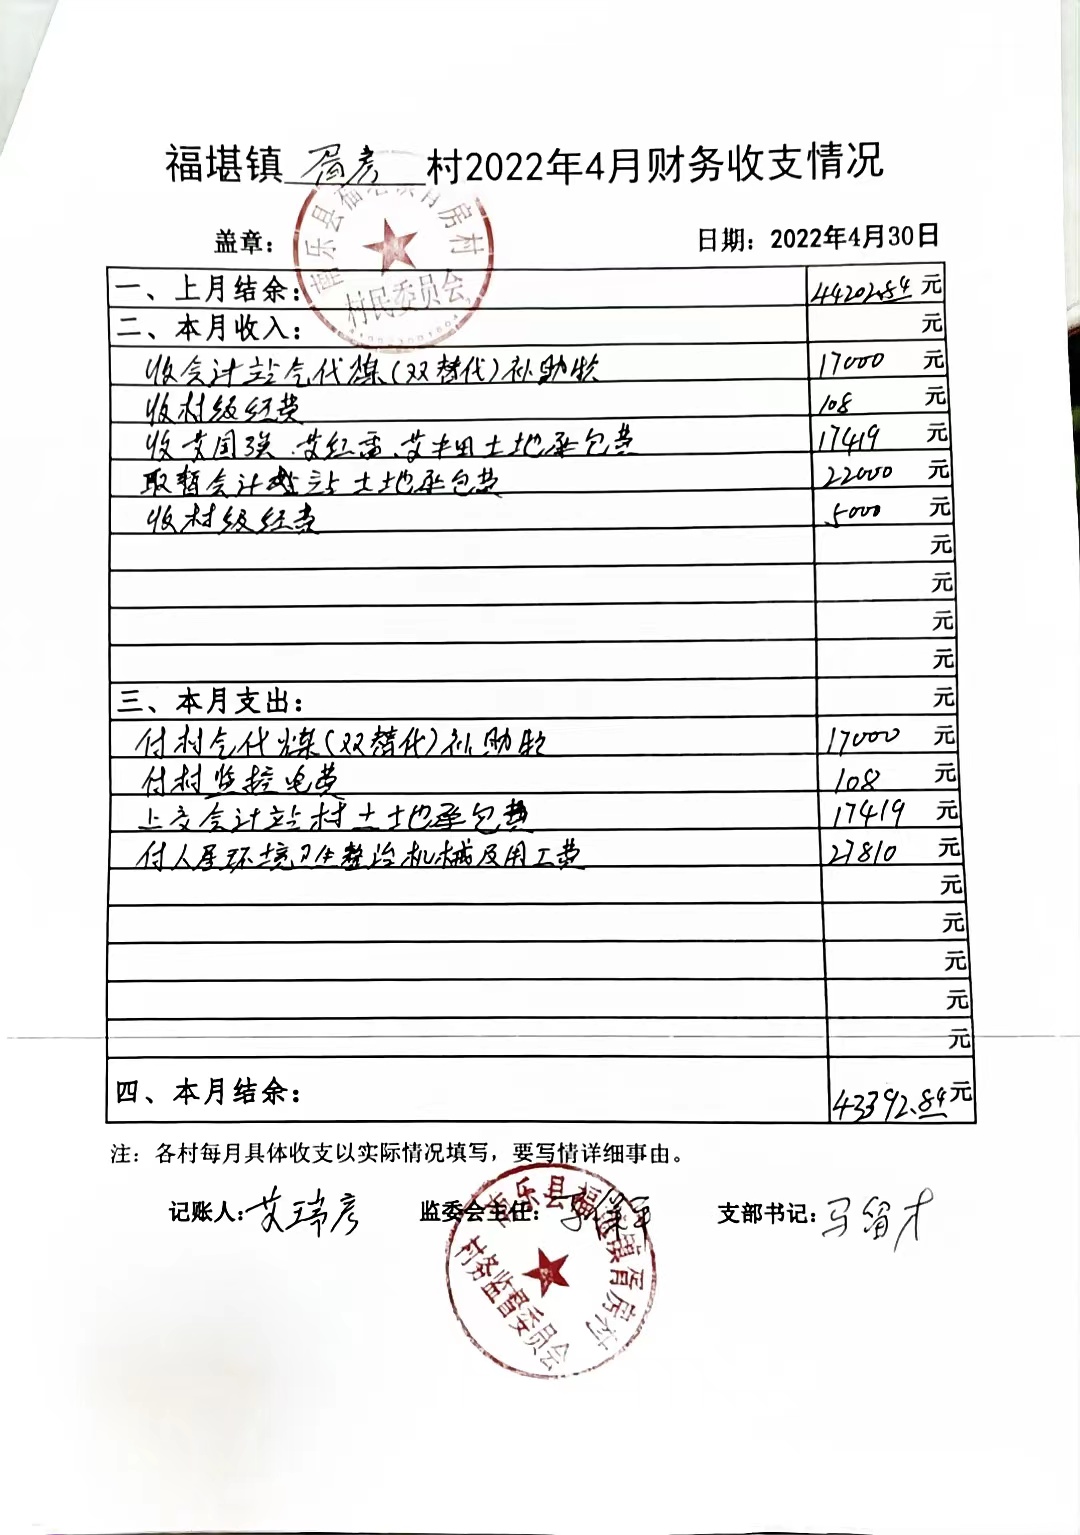 福堪镇 胥房 村2022年4月财务收支情况
盖章:
南乐县福堪镇胥房村
村民委员会
日期：2022年4月30日
一、上月结余: 44202.84 元
二、本月收入: 元
收会计站气代煤(双替代)补助款 17000 元
收村级经费 108 元
收艾国强、艾红雷、艾丰田土地承包费 17419 元
取暂会计站土地承包费 22000 元
收村级经费 5000 元
元
元
元
元
三、本月支出: 元
付村气代煤(双替代)补助款 17000 元
付村监控电费 108 元
上交会计站村土地承包费 17419 元
付人居环境卫生整治机械及用工费 27810 元
元
元
元
元
元
四、本月结余: 43392.84 元
注：各村每月具体收支以实际情况填写，要写情详细事由。
记账人: 艾玮彦 监委会主任: 支部书记: 马留才
南乐县福堪镇胥房村
村务监督委员会